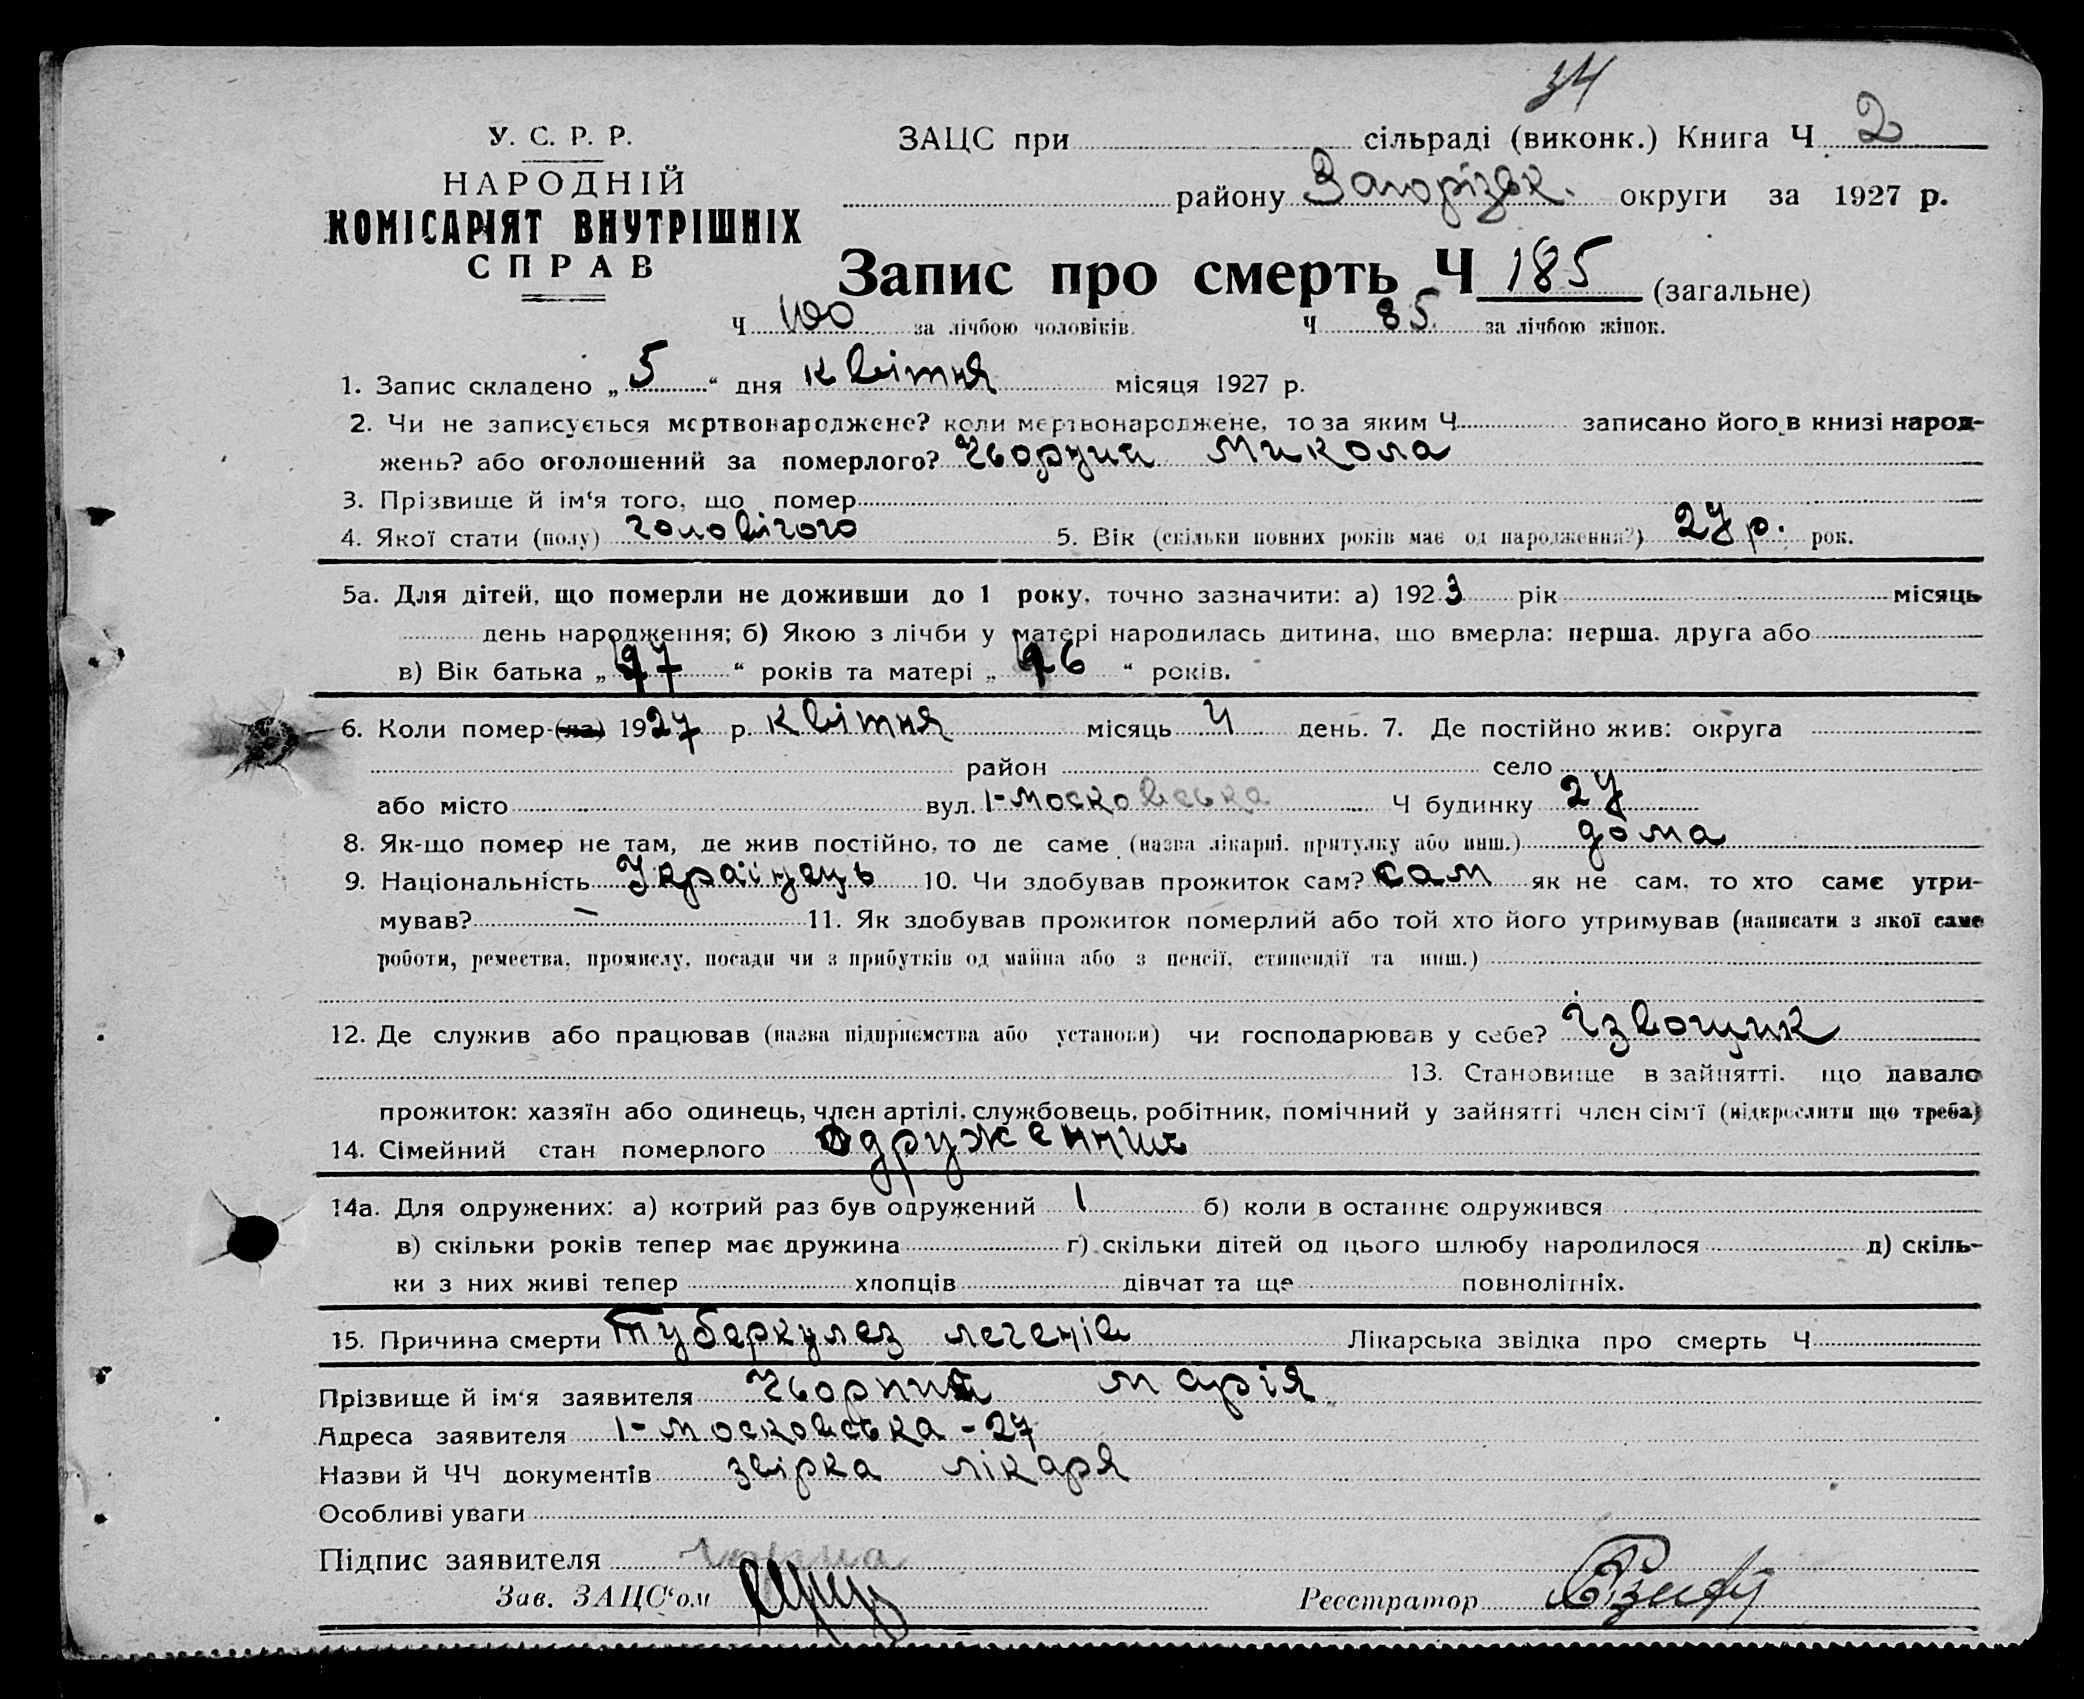 34
У. С. Р. Р.
НАРОДНІЙ
КОМІСАРІЯТ ВНУТРІШНІХ
СПРАВ
ЗАЦС при сільраді (виконк.) Книга Ч 2
району округи за 1927 р.
Запис про смерть Ч 185 (загальне)
Ч 100 за лічбою чоловіків. Ч 85 за лічбою жінок.
1. Запис складено „ 5 “ дня квітня місяця 1927 р.
2. Чи не записується мертвонароджене? коли мертвонароджене, то за яким Ч записано його в книзі народ-
жень? або оголошений за померлого? Чьорний Микола
3. Прізвище й ім‘я того, що помер
4. Якої стати (полу) чоловічого 5. Вік (скільки повних років має од народження?) 27 р. рок.
5а. Для дітей, що померли не доживши до 1 року, точно зазначити: а) 192 3 рік місяць
день народження; б) Якою з лічби у матері народилась дитина, що вмерла: перша, друга або
в) Вік батька „ “ років та матері „ “ років.
6. Коли помер-(ла) 1927 р. квітня місяць 4 день. 7. Де постійно жив: округа
район село
або місто вул. 1-Московська Ч будинку 27
8. Як-що помер не там, де жив постійно, то де саме (назва лікарні, притулку або инш.) дома
9. Національність Українець 10. Чи здобував прожиток сам? сам як не сам, то хто саме утри-
мував? — 11. Як здобував прожиток померлий або той хто його утримував (написати з якої саме
роботи, ремества, промислу, посади чи з прибутків од майна або з пенсії, стипендії та инш.)
12. Де служив або працював (назва підприємства або установи) чи господарював у себе? Ізвощик
13. Становище в зайнятті, що давало
прожиток: хазяїн або одинець, член артілі, службовець, робітник, помічний у зайнятті член сім‘ї (підкреслити що треба)
14. Сімейний стан померлого Одруженний
14а. Для одружених: а) котрий раз був одружений 1 б) коли в останнє одружився
в) скільки років тепер має дружина г) скільки дітей од цього шлюбу народилося д) скіль-
ки з них живі тепер хлопців дівчат та ще повнолітніх.
15. Причина смерти Туберкулез легенів Лікарська звідка про смерть Ч
Прізвище й ім‘я заявителя Чьорний Марія
Адреса заявителя 1-Московська - 27
Назви й ЧЧ документів звірка лікаря
Особливі уваги
Підпис заявителя
Зав. ЗАЦС‘ом
Реєстратор